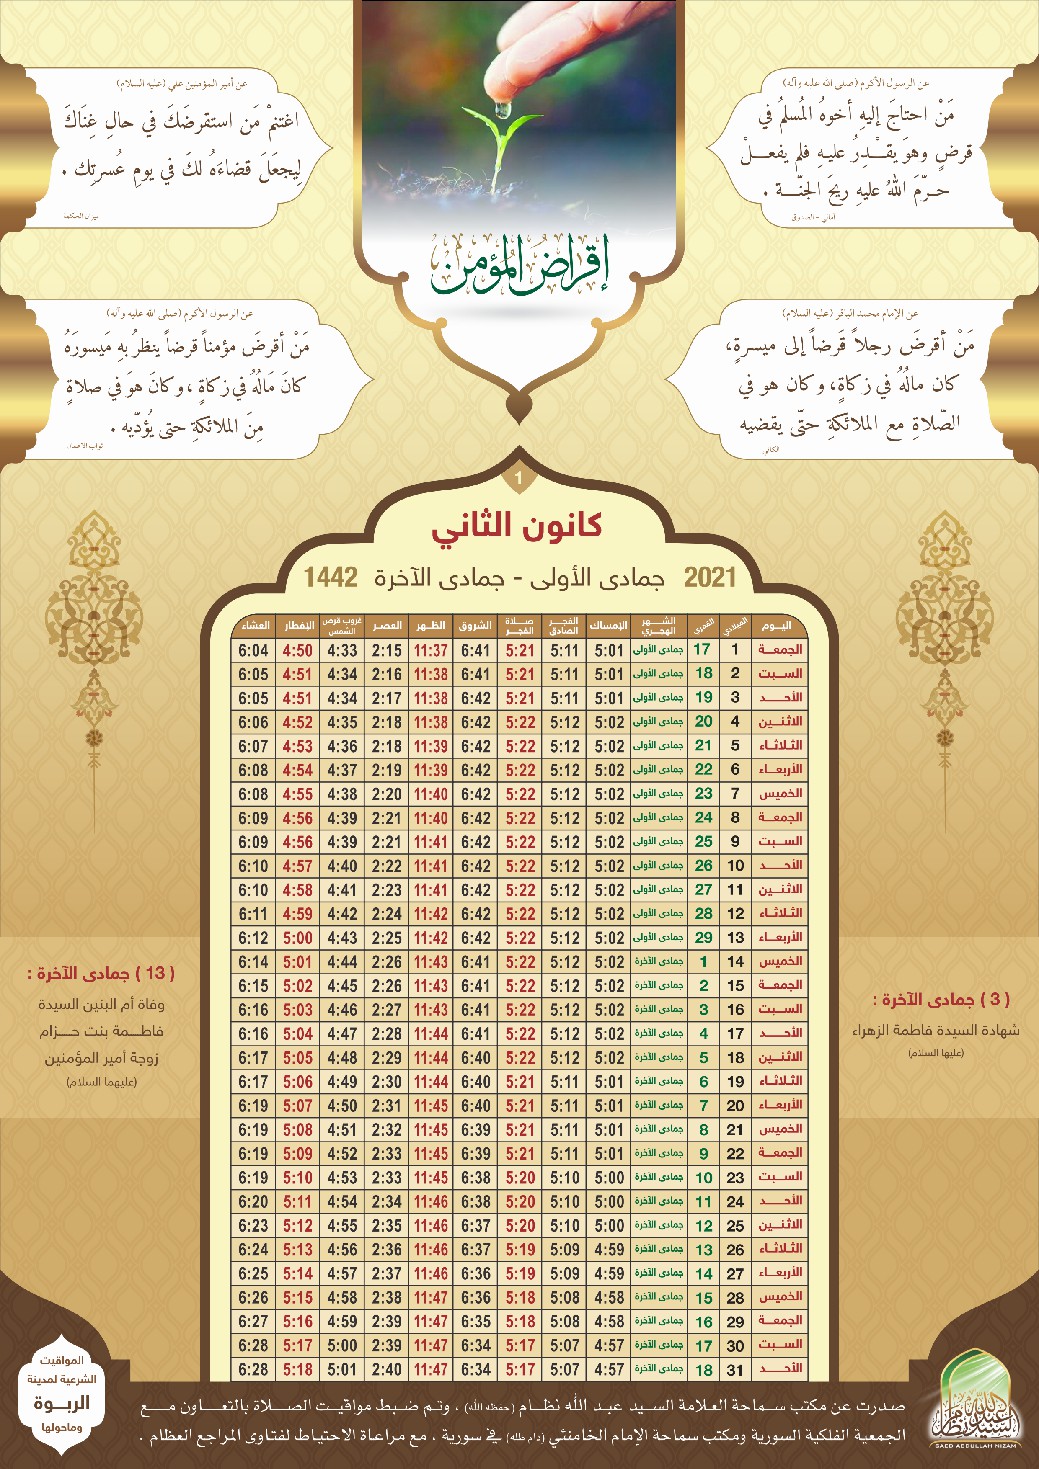 عن الرسول الأكرم (صلى الله عليه وآله)
مَنْ احتاجَ إليهِ أخوهُ المُسلمُ في
قرضٍ وهوَ يقـْـدِرُ عليـهِ فلم يفعـــلْ
حـرّمَ اللهُ عليهِ ريحَ الجنّـــة .
أمالي - الصدوق
عن أمير المؤمنين علي (عليه السلام)
اغتنمْ مَن استقرضَكَ في حالِ غِنَاكَ
لِيجعَلَ قضاءَهُ لكَ في يومِ عُسرتِك .
ميزان الحكمة
إقراضُ المُؤمن
عن الإمام محمد الباقر (عليه السلام)
مَنْ أقرضَ رجلاً قَرضاً إلى ميسرةٍ،
كان مالُهُ في زكاةٍ، وكان هو في
الصّلاةِ مع الملائكةِ حتّى يقضيه
الكافي
عن الرسول الأكرم (صلى الله عليه وآله)
مَنْ أقرضَ مؤمناً قرضاً ينظرُ بهِ مَيسورَهُ
كانَ مَالُهُ في زكاةٍ ، وكانَ هوَ في صلاةٍ
مِنَ الملائكةِ حتى يُؤدّيه .
ثواب الأعمال
1
كانون الثاني
2021 جمادى الأولى - جمادى الآخرة 1442
اليـوم الميلادي القمري الشـــهر الهجـري الإمساك الفجـر الصادق صـــلاة الفجـر الشروق الظـهر العصـر غروب قرص الشمس الإفطار العشاء
الجمعـة 1 17 جمادى الأولى 5:01 5:11 5:21 6:41 11:37 2:15 4:33 4:50 6:04
السـبت 2 18 جمادى الأولى 5:01 5:11 5:21 6:41 11:38 2:16 4:34 4:51 6:05
الأحــد 3 19 جمادى الأولى 5:01 5:11 5:21 6:42 11:38 2:17 4:34 4:51 6:05
الاثنـين 4 20 جمادى الأولى 5:02 5:12 5:22 6:42 11:38 2:18 4:35 4:52 6:06
الثلاثـاء 5 21 جمادى الأولى 5:02 5:12 5:22 6:42 11:39 2:18 4:36 4:53 6:07
الأربعـاء 6 22 جمادى الأولى 5:02 5:12 5:22 6:42 11:39 2:19 4:37 4:54 6:08
الخميس 7 23 جمادى الأولى 5:02 5:12 5:22 6:42 11:40 2:20 4:38 4:55 6:08
الجمعـة 8 24 جمادى الأولى 5:02 5:12 5:22 6:42 11:40 2:21 4:39 4:56 6:09
السـبت 9 25 جمادى الأولى 5:02 5:12 5:22 6:42 11:41 2:21 4:39 4:56 6:09
الأحــد 10 26 جمادى الأولى 5:02 5:12 5:22 6:42 11:41 2:22 4:40 4:57 6:10
الاثنـين 11 27 جمادى الأولى 5:02 5:12 5:22 6:42 11:41 2:23 4:41 4:58 6:10
الثلاثـاء 12 28 جمادى الأولى 5:02 5:12 5:22 6:42 11:42 2:24 4:42 4:59 6:11
الأربعـاء 13 29 جمادى الأولى 5:02 5:12 5:22 6:42 11:42 2:25 4:43 5:00 6:12
الخميس 14 1 جمادى الآخرة 5:02 5:12 5:22 6:41 11:43 2:26 4:44 5:01 6:14
الجمعـة 15 2 جمادى الآخرة 5:02 5:12 5:22 6:41 11:43 2:26 4:45 5:02 6:15
السـبت 16 3 جمادى الآخرة 5:02 5:12 5:22 6:41 11:43 2:27 4:46 5:03 6:16
الأحــد 17 4 جمادى الآخرة 5:02 5:12 5:22 6:41 11:44 2:28 4:47 5:04 6:16
الاثنـين 18 5 جمادى الآخرة 5:02 5:12 5:22 6:40 11:44 2:29 4:48 5:05 6:17
الثلاثـاء 19 6 جمادى الآخرة 5:01 5:11 5:21 6:40 11:44 2:30 4:49 5:06 6:17
الأربعـاء 20 7 جمادى الآخرة 5:01 5:11 5:21 6:40 11:45 2:31 4:50 5:07 6:19
الخميس 21 8 جمادى الآخرة 5:01 5:11 5:21 6:39 11:45 2:32 4:51 5:08 6:19
الجمعـة 22 9 جمادى الآخرة 5:01 5:11 5:21 6:39 11:45 2:33 4:52 5:09 6:19
السـبت 23 10 جمادى الآخرة 5:00 5:10 5:20 6:38 11:45 2:33 4:53 5:10 6:19
الأحــد 24 11 جمادى الآخرة 5:00 5:10 5:20 6:38 11:46 2:34 4:54 5:11 6:20
الاثنـين 25 12 جمادى الآخرة 5:00 5:10 5:20 6:37 11:46 2:35 4:55 5:12 6:23
الثلاثـاء 26 13 جمادى الآخرة 4:59 5:09 5:19 6:37 11:46 2:36 4:56 5:13 6:24
الأربعـاء 27 14 جمادى الآخرة 4:59 5:09 5:19 6:36 11:46 2:37 4:57 5:14 6:25
الخميس 28 15 جمادى الآخرة 4:58 5:08 5:18 6:36 11:47 2:38 4:58 5:15 6:26
الجمعـة 29 16 جمادى الآخرة 4:58 5:08 5:18 6:35 11:47 2:39 4:59 5:16 6:27
السـبت 30 17 جمادى الآخرة 4:57 5:07 5:17 6:34 11:47 2:39 5:00 5:17 6:28
الأحــد 31 18 جمادى الآخرة 4:57 5:07 5:17 6:34 11:47 2:40 5:01 5:18 6:28
( 3 ) جمادى الآخرة :
شهادة السيدة فاطمة الزهراء
(عليها السلام)
( 13 ) جمادى الآخرة :
وفاة أم البنين السيدة
فاطــمة بنت حــزام
زوجة أمير المؤمنين
(عليهما السلام)
المواقيت
الشرعية لمدينة
الربـوة
وماحولها
صدرت عن مكتب سماحة العلامة السيد عبد الله نظـام (حفظه الله) ، وتـم ضبـط مواقيـت الصـلاة بالتعـاون مـع
الجمعية الفلكية السورية ومكتب سماحة الإمام الخامنئي (دام ظله) في سورية ، مع مراعاة الاحتياط لفتاوى المراجع العظام .
السيد عبدالله نظام
SAED ABDULLAH NIZAM